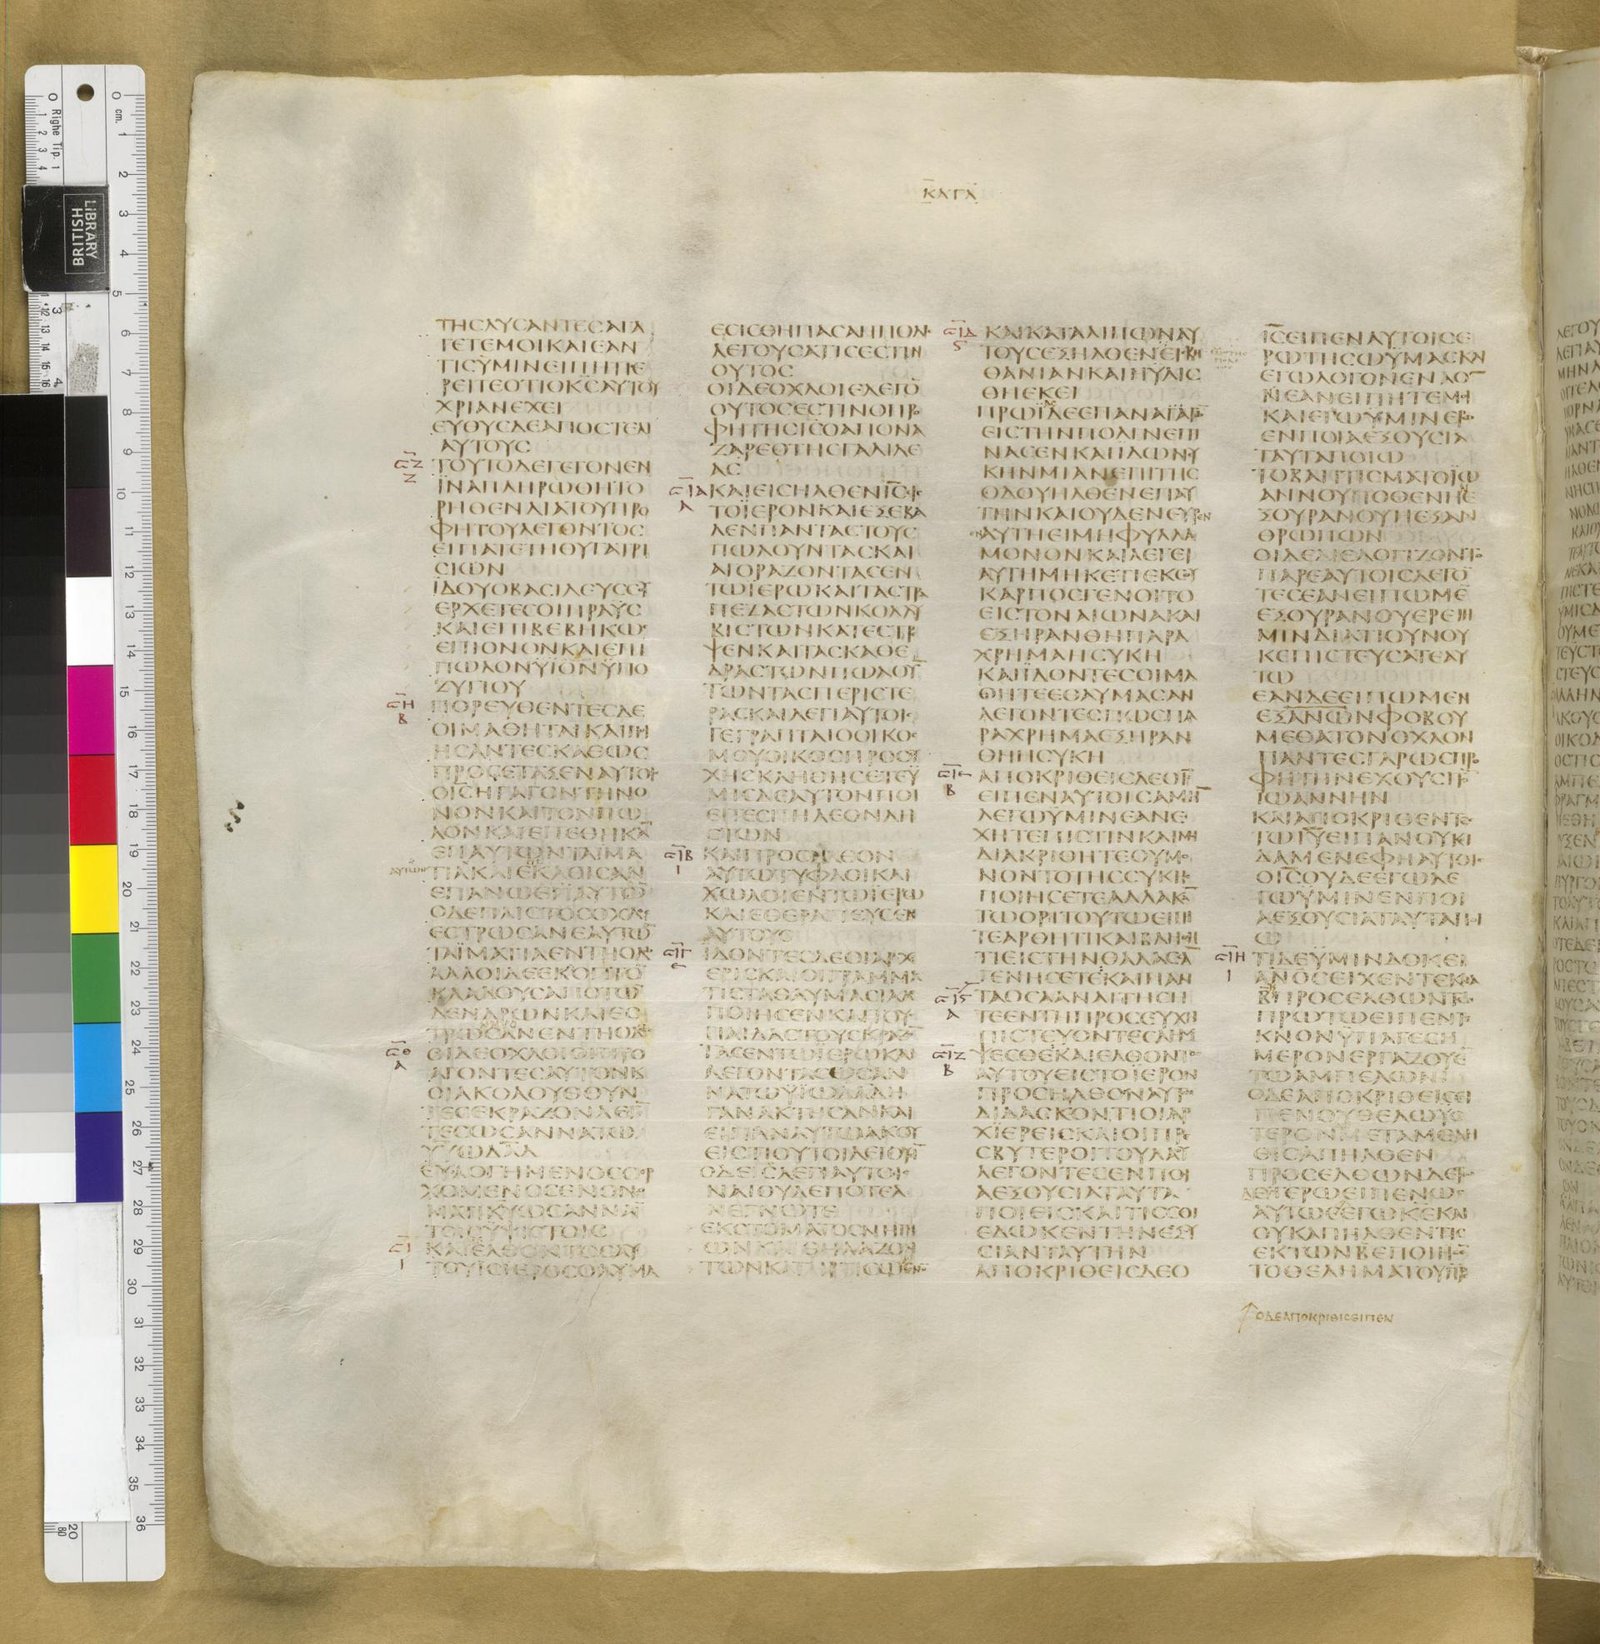 ΚΑΤΑ
ΤΗϹΛΥϹΑΝΤΕϹΑΓΑ
ΓΕΤΕΜΟΙΚΑΙΕΑΝ
ΤΙϹΫΜΙΝΕΙΠΗΤΙΕ
ΡΕΙΤΕΟΤΙΟΚϹΑΥΤΟΥ
ΧΡΙΑΝΕΧΕΙ
ΕΥΘΥϹΔΕΑΠΟϹΤΕΛΙ
ΑΥΤΟΥϹ
ΤΟΥΤΟΔΕΓΕΓΟΝΕΝ
ΪΝΑΠΛΗΡΩΘΗΤΟ
ΡΗΘΕΝΔΙΑΤΟΥΠΡΟ
ΦΗΤΟΥΛΕΓΟΝΤΟϹ
ΕΙΠΑΤΕΤΗΘΥΓΑΤΡΙ
ϹΙΩΝ
ΪΔΟΥΟΒΑϹΙΛΕΥϹϹΟΥ
ΕΡΧΕΤΕϹΟΙΠΡΑΫϹ
ΚΑΙΕΠΙΒΕΒΗΚΩϹ
ΕΠΙΟΝΟΝΚΑΙΕΠΙ
ΠΩΛΟΝΥΪΟΝΫΠΟ
ΖΥΓΙΟΥ
ΠΟΡΕΥΘΕΝΤΕϹΔΕ
ΟΙΜΑΘΗΤΑΙΚΑΙΠΟΙ
ΗϹΑΝΤΕϹΚΑΘΩϹ
ΠΡΟϹΕΤΑΞΕΝΑΥΤΟΙϹ
ΟΙϹΗΓΑΓΟΝΤΗΝΟ
ΝΟΝΚΑΙΤΟΝΠΩ
ΛΟΝΚΑΙΕΠΕΘΗΚΑ̅
ΕΠΑΥΤΩΝΤΑΪΜΑ
ΤΙΑΚΑΙΕΚΑΘΙϹΑΝ
ΕΠΑΝΩΕΠΑΥΤΩ̅
ΟΔΕΠΛΙϹΤΟϹΟΧΛΟϹ
ΕϹΤΡΩϹΑΝΕΑΥΤΩ̅
ΤΑΪΜΑΤΙΑΕΝΤΗΟΔΩ
ΑΛΛΟΙΔΕΕΚΟΠΤΟ̅
ΚΛΑΔΟΥϹΑΠΟΤΩ̅
ΔΕΝΔΡΩΝΚΑΙΕϹ
ΤΡΩϹΑΝΕΝΤΗΟΔΩ
ΟΙΔΕΟΧΛΟΙΟΙΠΡΟ
ΑΓΟΝΤΕϹΑΥΤΟΝΚΑΙ
ΟΙΑΚΟΛΟΥΘΟΥΝ
ΤΕϹΕΚΡΑΖΟΝΛΕΓΟ̅
ΤΕϹΩϹΑΝΝΑΤΩ
Υ̅Ω̅ΔΑ̅Δ̅
ΕΥΛΟΓΗΜΕΝΟϹΟΕΡ
ΧΟΜΕΝΟϹΕΝΟΝΟ
ΜΑΤΙΚ̅Υ̅ΩϹΑΝΝΑΕ̅
ΤΟΙϹΥΨΙϹΤΟΙϹ
ΚΑΙΕΛΘΟΝΤΟϹΑΥ
ΤΟΥΪϹΙΕΡΟϹΟΛΥΜΑ
ΕϹΙϹΘΗΠΑϹΑΗΠΟΛΙϹ
ΛΕΓΟΥϹΑΤΙϹΕϹΤΙΝ
ΟΥΤΟϹ
ΟΙΔΕΟΧΛΟΙΕΛΕΓΟ̅
ΟΥΤΟϹΕϹΤΙΝΟΠΡΟ
ΦΗΤΗϹΙ̅Ϲ̅ΟΑΠΟΝΑ
ΖΑΡΕΘΤΗϹΓΑΛΙΛΕ
ΑϹ
ΚΑΙΕΙϹΗΛΘΕΝΙ̅Ϲ̅ΕΙϹ
ΤΟΪΕΡΟΝΚΑΙΕΞΕΒΑ
ΛΕΝΠΑΝΤΑϹΤΟΥϹ
ΠΩΛΟΥΝΤΑϹΚΑΙ
ΑΓΟΡΑΖΟΝΤΑϹΕΝ
ΤΩΪΕΡΩΚΑΙΤΑϹΤΡΑ
ΠΕΖΑϹΤΩΝΚΟΛΛΥ
ΒΙϹΤΩΝΚΑΤΕϹΤΡΕ
ΨΕΝΚΑΙΤΑϹΚΑΘΕ
ΔΡΑϹΤΩΝΠΩΛΟΥ̅
ΤΩΝΤΑϹΠΕΡΙϹΤΕ
ΡΑϹΚΑΙΛΕΓΙΑΥΤΟΙϹ
ΓΕΓΡΑΠΤΑΙΟΟΙΚΟϹ
ΜΟΥΟΙΚΟϹΠΡΟϹΕΥ
ΧΗϹΚΛΗΘΗϹΕΤΕΫ
ΜΙϹΔΕΑΥΤΟΝΠΟΙ
ΕΙΤΕϹΠΗΛΕΟΝΛΗ
ϹΤΩΝ
ΚΑΙΠΡΟϹΗΛΘΟΝ
ΑΥΤΩΤΥΦΛΟΙΚΑΙ
ΧΩΛΟΙΕΝΤΩΪΕΡΩ
ΚΑΙΕΘΕΡΑΠΕΥϹΕΝ
ΑΥΤΟΥϹ
ΪΔΟΝΤΕϹΔΕΟΙΑΡΧΙ
ΕΡΙϹΚΑΙΟΙΓΡΑΜΜΑ
ΤΙϹΤΑΘΑΥΜΑϹΙΑΑ
ΠΟΙΗϹΕΝΚΑΙΤΟΥϹ
ΠΑΙΔΑϹΤΟΥϹΚΡΑΖΟ̅
ΤΑϹΕΝΤΩΪΕΡΩΚΑΙ
ΛΕΓΟΝΤΑϹΩϹΑΝ
ΝΑΤΩΫΪΩΔΑΔΗ
ΓΑΝΑΚΤΗϹΑΝΚΑΙ
ΕΙΠΑΝΑΥΤΩΑΚΟΥ
ΕΙϹΤΙΟΥΤΟΙΛΕΓΟΥϹΙ̅
ΟΔΕΙ̅Ϲ̅ΛΕΓΙΑΥΤΟΙϹ
ΝΑΙΟΥΔΕΠΟΤΕΑ
ΝΕΓΝΩΤΕ
ΕΚϹΤΟΜΑΤΟϹΝΗΠΙ
ΩΝΚΑΙΘΗΛΑΖΟΝ
ΤΩΝΚΑΤΗΡΤΙϹΩΑΙΝΟ̅
ΚΑΙΚΑΤΑΛΙΠΩΝΑΥ
ΤΟΥϹΕΞΗΛΘΕΝΕΙϹΒΗ
ΘΑΝΙΑΝΚΑΙΗΥΛΙϹ
ΘΗΕΚΕΙ
ΠΡΩΪΔΕΕΠΑΝΑΓΑΓΩ̅
ΕΙϹΤΗΝΠΟΛΙΝΕΠΙ
ΝΑϹΕΝΚΑΙΙΔΩΝϹΥ
ΚΗΝΜΙΑΝΕΠΙΤΗϹ
ΟΔΟΥΗΛΘΕΝΕΠΑΥ
ΤΗΝΚΑΙΟΥΔΕΝΕΥΡΕΝ
ΑΥΤΗΕΙΜΗΦΥΛΛΑ
ΜΟΝΟΝΚΑΙΛΕΓΕΙ
ΑΥΤΗΜΗΚΕΤΙΕΚϹΟΥ
ΚΑΡΠΟϹΓΕΝΟΙΤΟ
ΕΙϹΤΟΝΑΙΩΝΑΚΑΙ
ΕΞΗΡΑΝΘΗΠΑΡΑ
ΧΡΗΜΑΗϹΥΚΗ
ΚΑΙΪΔΟΝΤΕϹΟΙΜΑ
ΘΗΤΕΕΘΑΥΜΑϹΑΝ
ΛΕΓΟΝΤΕϹΠΩϹΠΑ
ΡΑΧΡΗΜΑΕΞΗΡΑΝ
ΘΗΗϹΥΚΗ
ΑΠΟΚΡΙΘΕΙϹΔΕΟΙ̅Ϲ̅
ΕΙΠΕΝΑΥΤΟΙϹΑΜΗ̅
ΛΕΓΩΫΜΙΝΕΑΝΕ
ΧΗΤΕΠΙϹΤΙΝΚΑΙΜΗ
ΔΙΑΚΡΙΘΗΤΕΟΥΜΟ
ΝΟΝΤΟΤΗϹϹΥΚΗϹ
ΠΟΙΗϹΕΤΕΑΛΛΑΚΑ̅
ΤΩΟΡΙΤΟΥΤΩΕΙΠΗ
ΤΕΑΡΘΗΤΙΚΑΙΒΛΗΘΗ
ΤΙΕΙϹΤΗΝΘΑΛΑϹϹΑ̅
ΓΕΝΗϹΕΤΕΚΑΙΠΑΝ
ΤΑΟϹΑΑΝΑΙΤΗϹΗ
ΤΕΕΝΤΗΠΡΟϹΕΥΧΗ
ΠΙϹΤΕΥΟΝΤΕϹΛΗΜ
ΨΕϹΘΕΚΑΙΕΛΘΟΝΤΟϹ
ΑΥΤΟΥΕΙϹΤΟΙΕΡΟΝ
ΠΡΟϹΗΛΘΟΝΑΥΤΩ
ΔΙΔΑϹΚΟΝΤΙΟΙΑΡ
ΧΙΕΡΕΙϹΚΑΙΟΙΠΡΕ
ϹΒΥΤΕΡΟΙΤΟΥΛΑΟΥ
ΛΕΓΟΝΤΕϹΕΝΠΟΙ
ΑΕΞΟΥϹΙΑΤΑΥΤΑ
ΠΟΙΕΙϹΚΑΙΤΙϹϹΟΙ
ΕΔΩΚΕΝΤΗΝΕΞΟΥ
ϹΙΑΝΤΑΥΤΗΝ
ΑΠΟΚΡΙΘΕΙϹΔΕΟ
Ι̅Ϲ̅ΕΙΠΕΝΑΥΤΟΙϹΕ
ΡΩΤΗϹΩΫΜΑϹΚΑΙ
ΕΓΩΛΟΓΟΝΕΝΑΟ̅
ΝΕΑΝΕΙΠΗΤΕΜΟΙ
ΚΑΙΕΓΩΫΜΙΝΕΡΩ
ΕΝΠΟΙΑΕΞΟΥϹΙΑ
ΤΑΥΤΑΠΟΙΩ
ΤΟΒΑΠΤΙϹΜΑΤΟΪΩ
ΑΝΝΟΥΠΟΘΕΝΗΝΕ
ΞΟΥΡΑΝΟΥΗΕΞΑΝ
ΘΡΩΠΩΝ
ΟΙΔΕΔΙΕΛΟΓΙΖΟΝΤΟ
ΠΑΡΕΑΥΤΟΙϹΛΕΓΟ̅
ΤΕϹΕΑΝΕΙΠΩΜΕ̅
ΕΞΟΥΡΑΝΟΥΕΡΕΙΗ
ΜΙΝΔΙΑΤΙΟΥΝΟΥ
ΚΕΠΙϹΤΕΥϹΑΤΕΑΥ
ΤΩ
ΕΑΝΔΕΕΙΠΩΜΕΝ
ΕΞΑΝΩ̅Ν̅ΦΟΒΟΥ
ΜΕΘΑΤΟΝΟΧΛΟΝ
ΠΑΝΤΕϹΓΑΡΩϹΠΡΟ
ΦΗΤΗΝΕΧΟΥϹΙΤΟ̅
ΪΩΑΝΝΗΝ
ΚΑΙΑΠΟΚΡΙΘΕΝΤΕϹ
ΤΩΙ̅Υ̅ΕΙΠΑΝΟΥΚΟΙ
ΔΑΜΕΝΕΦΗΑΥΤΟΙϹ
ΟΙ̅Ϲ̅ΟΥΔΕΕΓΩΛΕ
ΓΩΫΜΙΝΕΝΠΟΙ
ΑΕΞΟΥϹΙΑΤΑΥΤΑΠΟΙ
Ω
ΤΙΔΕΫΜΙΝΔΟΚΕΙ
ΑΝΟ̅Ϲ̅ΕΙΧΕΝΤΕΚΝΑ
Β̅ΠΡΟϹΕΛΘΩΝΤΩ
ΠΡΩΤΩΕΙΠΕΝΤΕ
ΚΝΟΝΫΠΑΓΕϹΗ
ΜΕΡΟΝΕΡΓΑΖΟΥΕ̅
ΤΩΑΜΠΕΛΩΝΙ
ΟΔΕΑΠΟΚΡΙΘΕΙϹΕΙ
ΠΕΝΟΥΘΕΛΩΫϹ
ΤΕΡΟΝΜΕΤΑΜΕΛΗ
ΘΙϹΑΠΗΛΘΕΝ
ΠΡΟϹΕΛΘΩΝΔΕΤΩ
ΕΤΕΡΩΕΙΠΕΝΩϹ
ΑΥΤΩϹΕΓΩΚΕΚΑΙ
ΟΥΚΑΠΗΛΘΕΝΤΙϹ
ΕΚΤΩΝΒ̅ΕΠΟΙΗϹΕ̅
ΤΟΘΕΛΗΜΑΤΟΥΠ̅Ρ̅Ϲ̅
ΟΔΕΑΠΟΚΡΙΘΙϹΕΙΠΕΝ